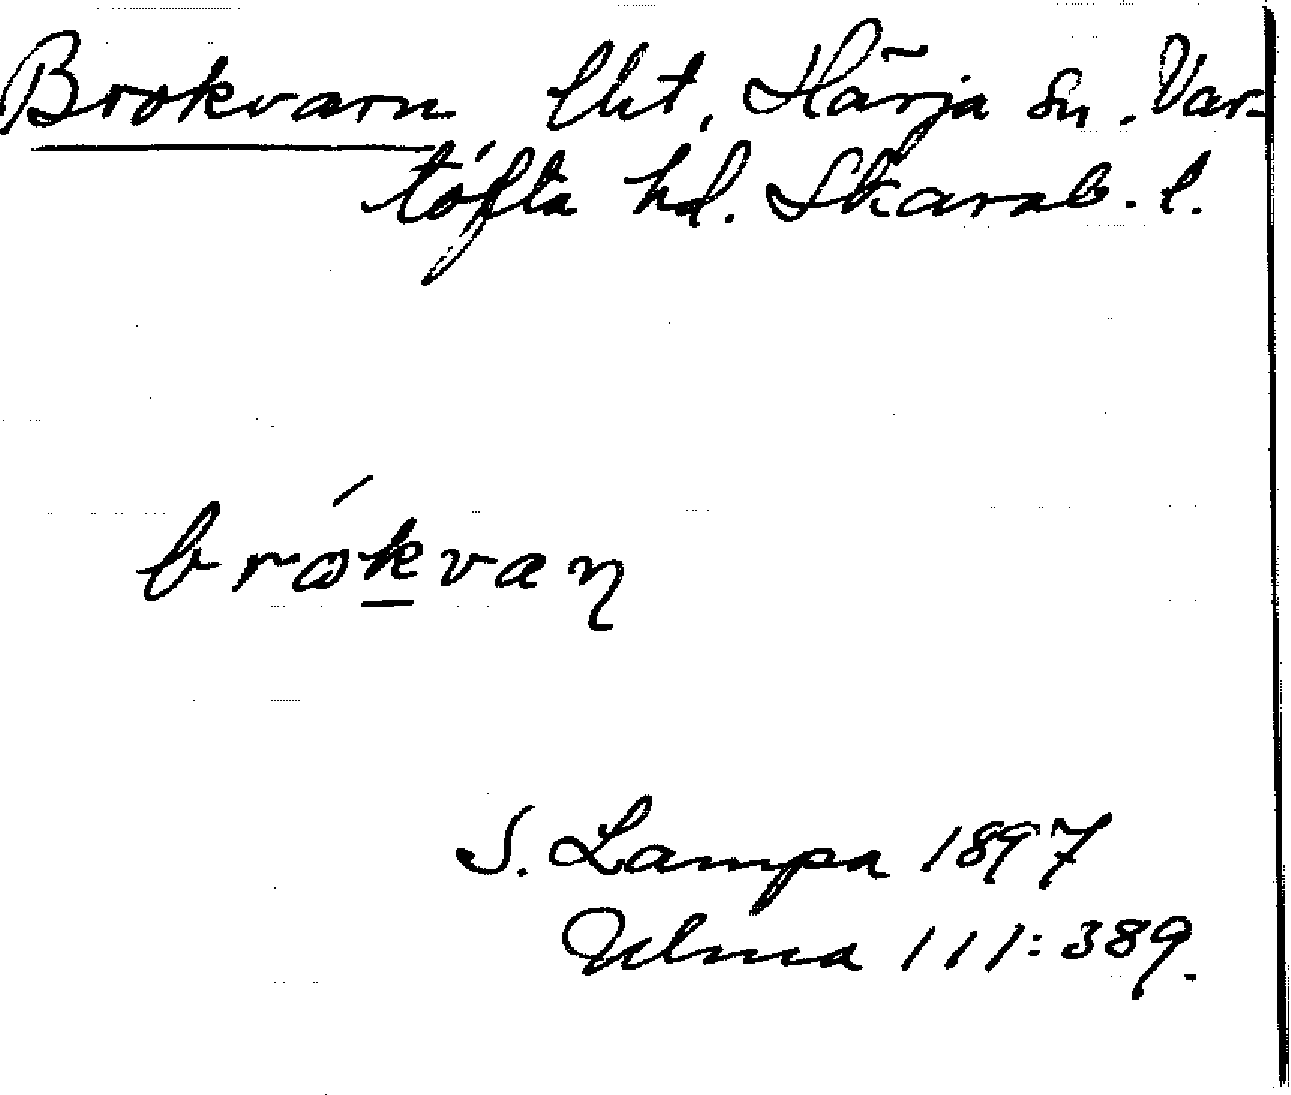 Brokvarn lht, Härja sn. Var-
tofta hd. Skarab. l.
brókvaɳ
S. Lampa 1897
Ulma 111:389.